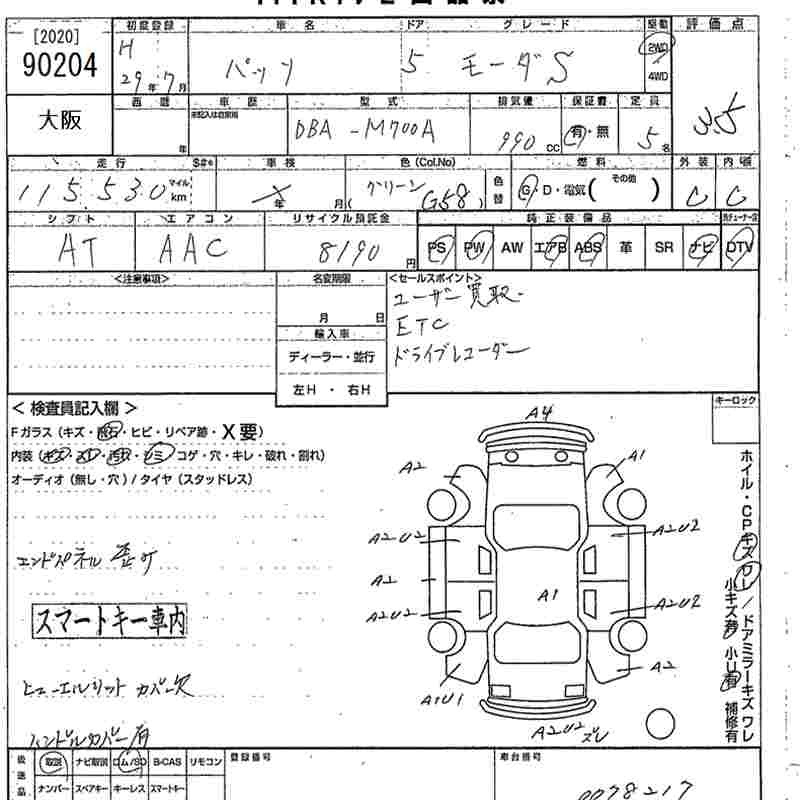 [2020]
90204
大阪
初度登録 車名 ドア グレード 駆動 評価点
H 29年7月 パッソ 5 モーダS 2WD 4WD 3.5
西暦 車歴 型式 排気量 保証書 定員
年 未記入は自家用 DBA-M700A 990cc 有・無 5名
走行 S#* 車検 色(Col.No) 燃料 外装 内装
115,530 マイル km ×年 月 グリーン (G58) 色替 G・D・電気(その他) C C
シフト エアコン リサイクル預託金 純正装備品
AT AAC 8190円 PS PW AW エアB ABS 革 SR ナビ DTV
<注意事項> 名変期限 <セールスポイント>
月 日
輸入車
ディーラー・並行
左H・右H
ユーザー買取.
ETC
ドライブレコーダー
<検査員記入欄> キーロック
Fガラス(キズ・飛石・ヒビ・リペア跡・X要)
内装(キズ・スレ・汚れ・シミ・コゲ・穴・キレ・破れ・割れ)
オーディオ(無し・穴)/タイヤ(スタッドレス)
エンドパネル 歪み
スマートキー車内
ヒューエルリット カバー欠
ハンドルカバー有
A4
A2 A1
A2U2 A2U2
A2 A1
A2U2 A2U2
A1U1 A2
A2U2 ズレ
ホイル・CPキズワレ/ドアミラーキズワレ
小キズ有 小U有 補修有
後送品 取説 ナビ取説 ロム/SD B-CAS リモコン 登録番号 車台番号
ナンバー スペアキー キーレス スマートキー 0078217